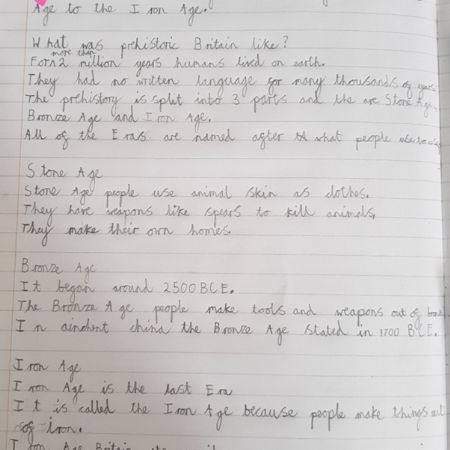 Age to the Iron Age.
What was prehistoric Britain like?
more than
For 2 million years humans lived on earth.
They had no written language for many thousands of years
The prehistory is split into 3 parts and the are Stone Age,
Bronze Age and Iron Age.
All of the Eras are named after what people use to
Stone Age
Stone Age people use animal skin as clothes.
They have weapons like spears to kill animals,
They make their own homes
Bronze Age
It began around 2500 BCE.
The Bronze Age people make tools and weapons out of
In aindent china the Bronze Age stated in 1700 BCE.
Iron Age
Iron Age is the last Era
It is called the Iron Age because people make things out
of Iron.
Iron Age Britain